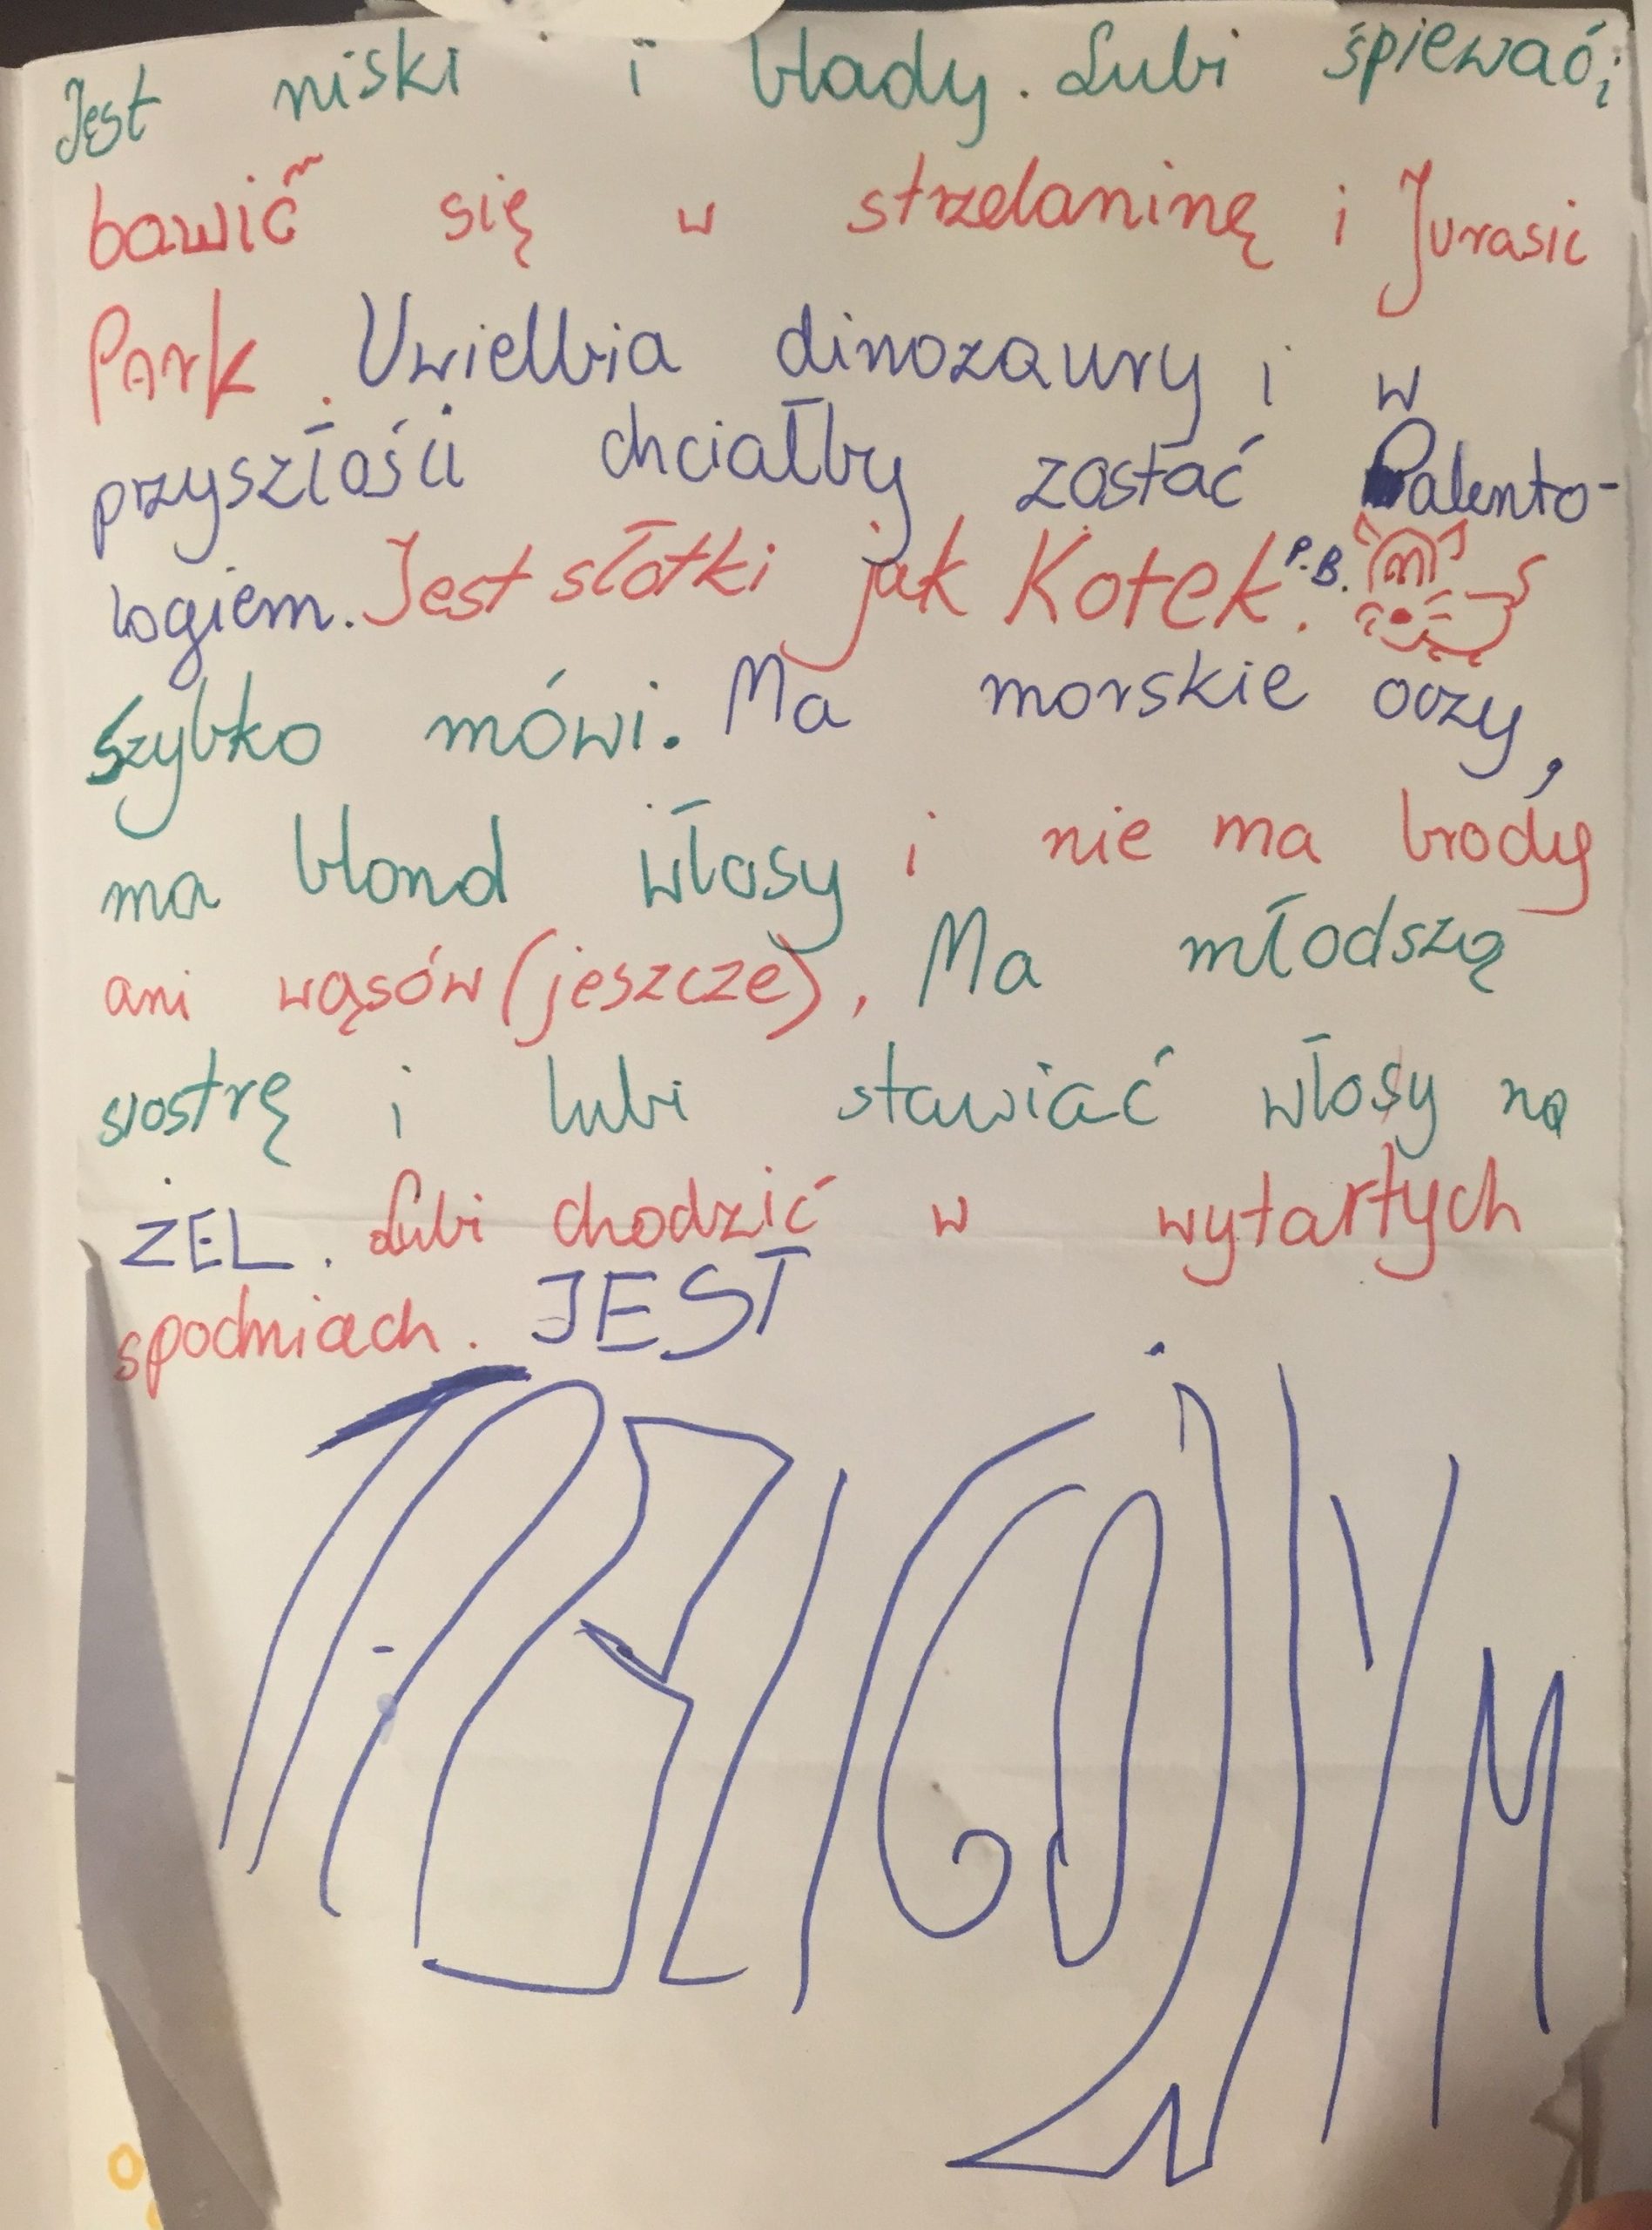 Jest niski i blady. Lubi śpiewać i
bawić się w strzelaninę i Jurasic
Park. Uwielbia dinozaury i w
przyszłości chciałby zostać Palento-
logiem. Jest słotki jak Kotek. P.B.
Szybko mówi. Ma morskie oczy,
ma blond włosy i nie ma brody
ani wąsów (jeszcze), Ma młodszą
siostrę i lubi stawiać włosy na
ŻEL. Lubi chodzić w wytartych
spodniach. JEST